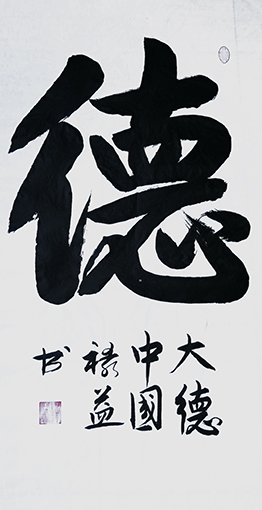 德
大德
中國
禄益
书